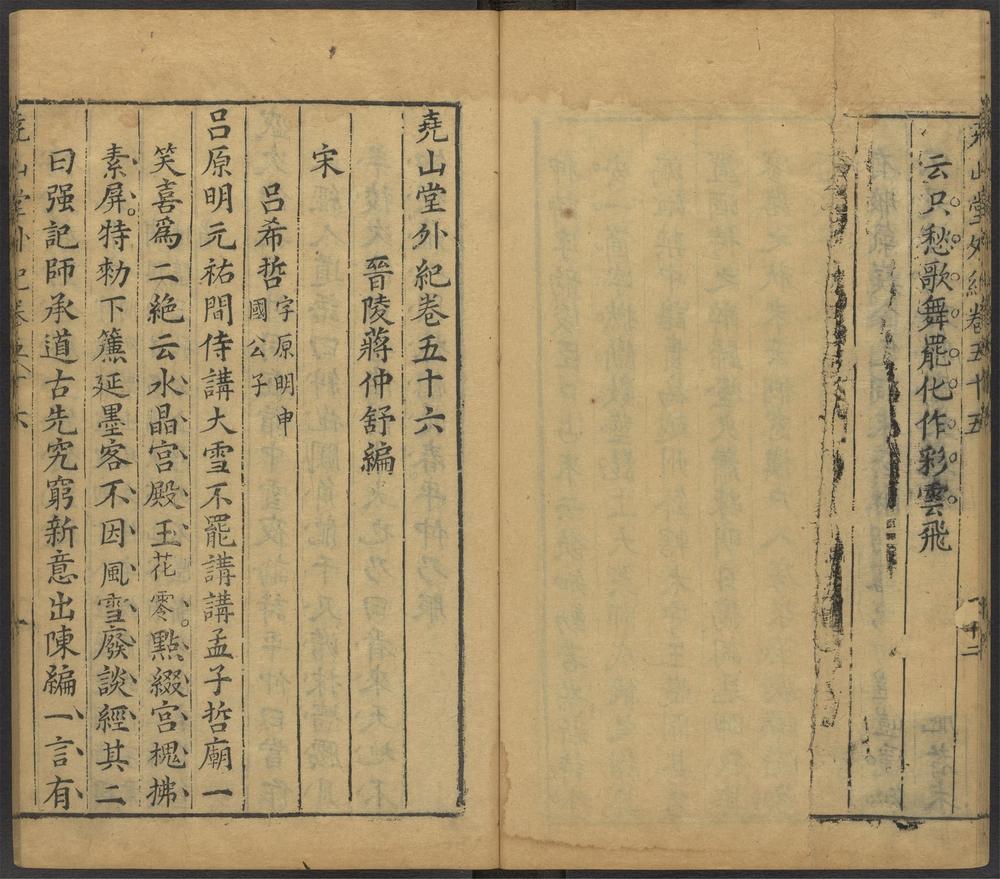 堯山堂外紀卷五十五
十二
云只愁歌舞罷化作彩雲飛
堯山堂外紀卷五十六
晉陵蔣仲舒編
宋
呂希哲字原明申國公子
呂原明元祐間侍講大雪不罷講講孟子哲廟一
笑喜爲二絶云水晶宮殿玉花零點綴宮槐拂
素屏特勑下簾延墨客不因風雪廢談經其二
曰强記師承道古先究窮新意出陳編一言有
堯山堂外紀卷五十六